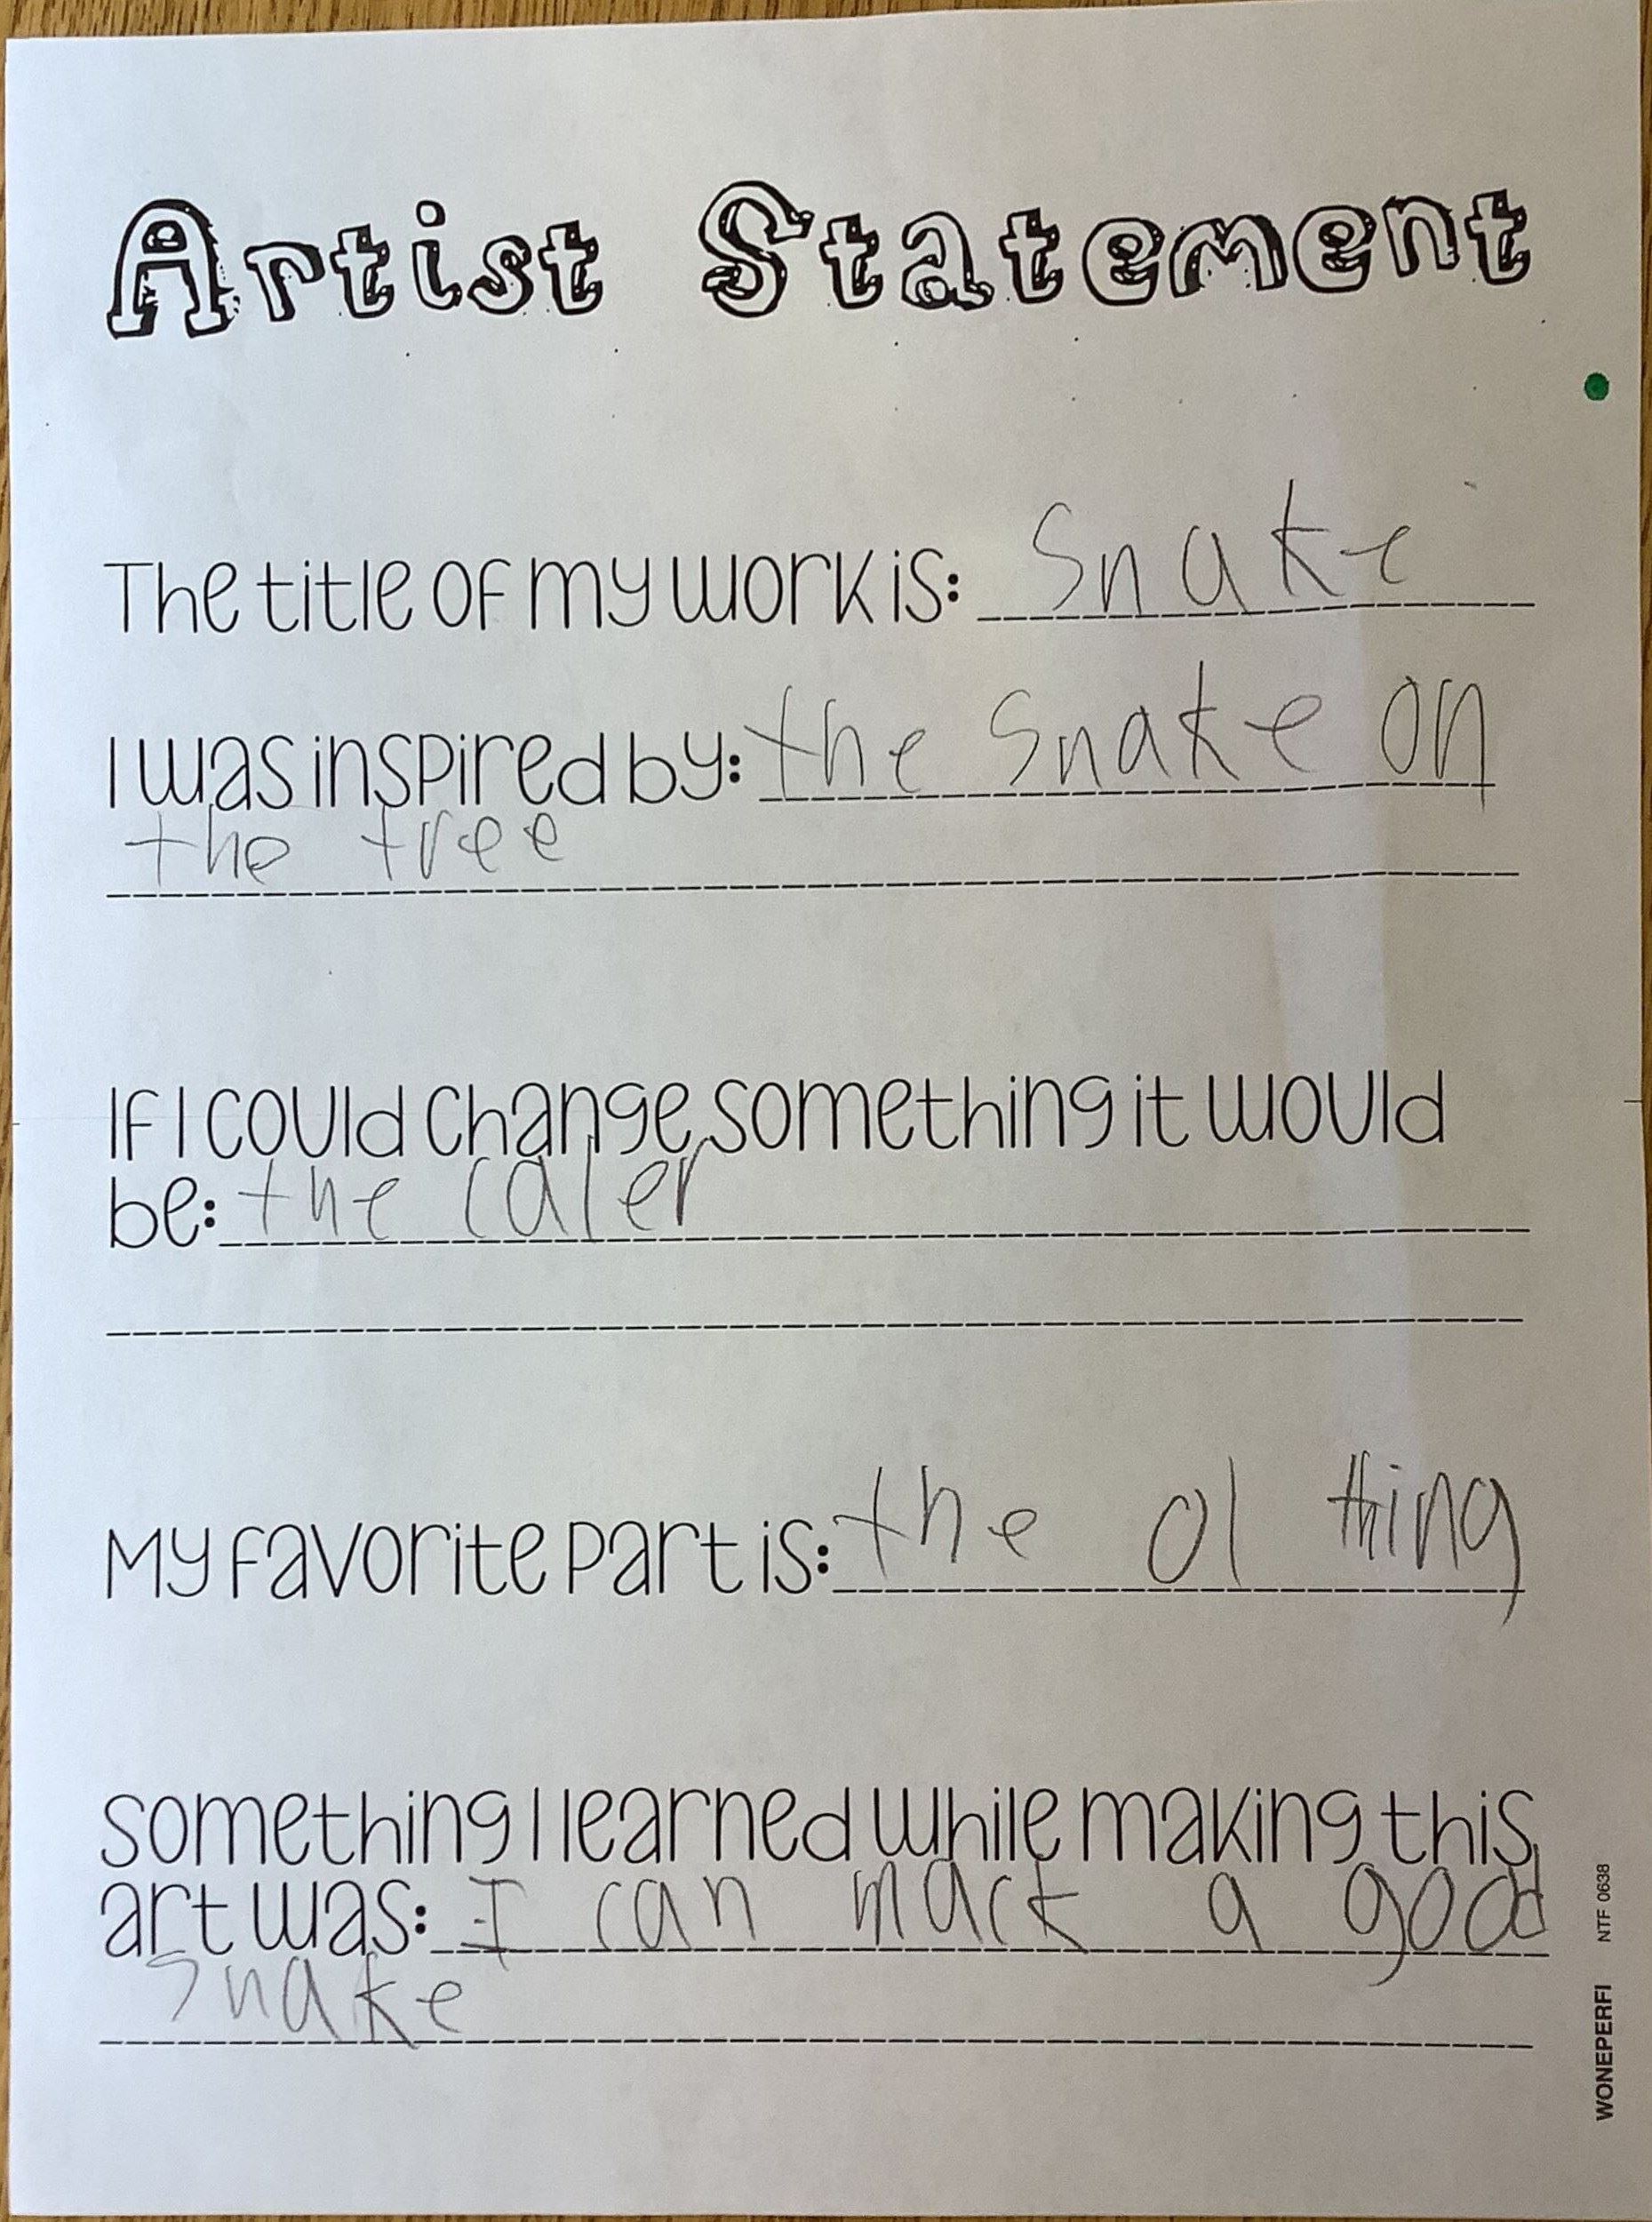 Artist Statement
The title of my work is: Snake
I was inspired by: the snake on
the tree
If I could change something it would
be: the caler
My favorite part is: the ol thing
Something I learned while making this
art was: I can mack a good
snake
WONEPERFI NTF 0638